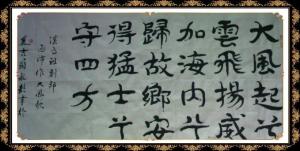 大風起兮
雲飛揚威
加海内兮
歸故鄉安
得猛士兮
守四方
漢高祖劉邦
沛作大風歌